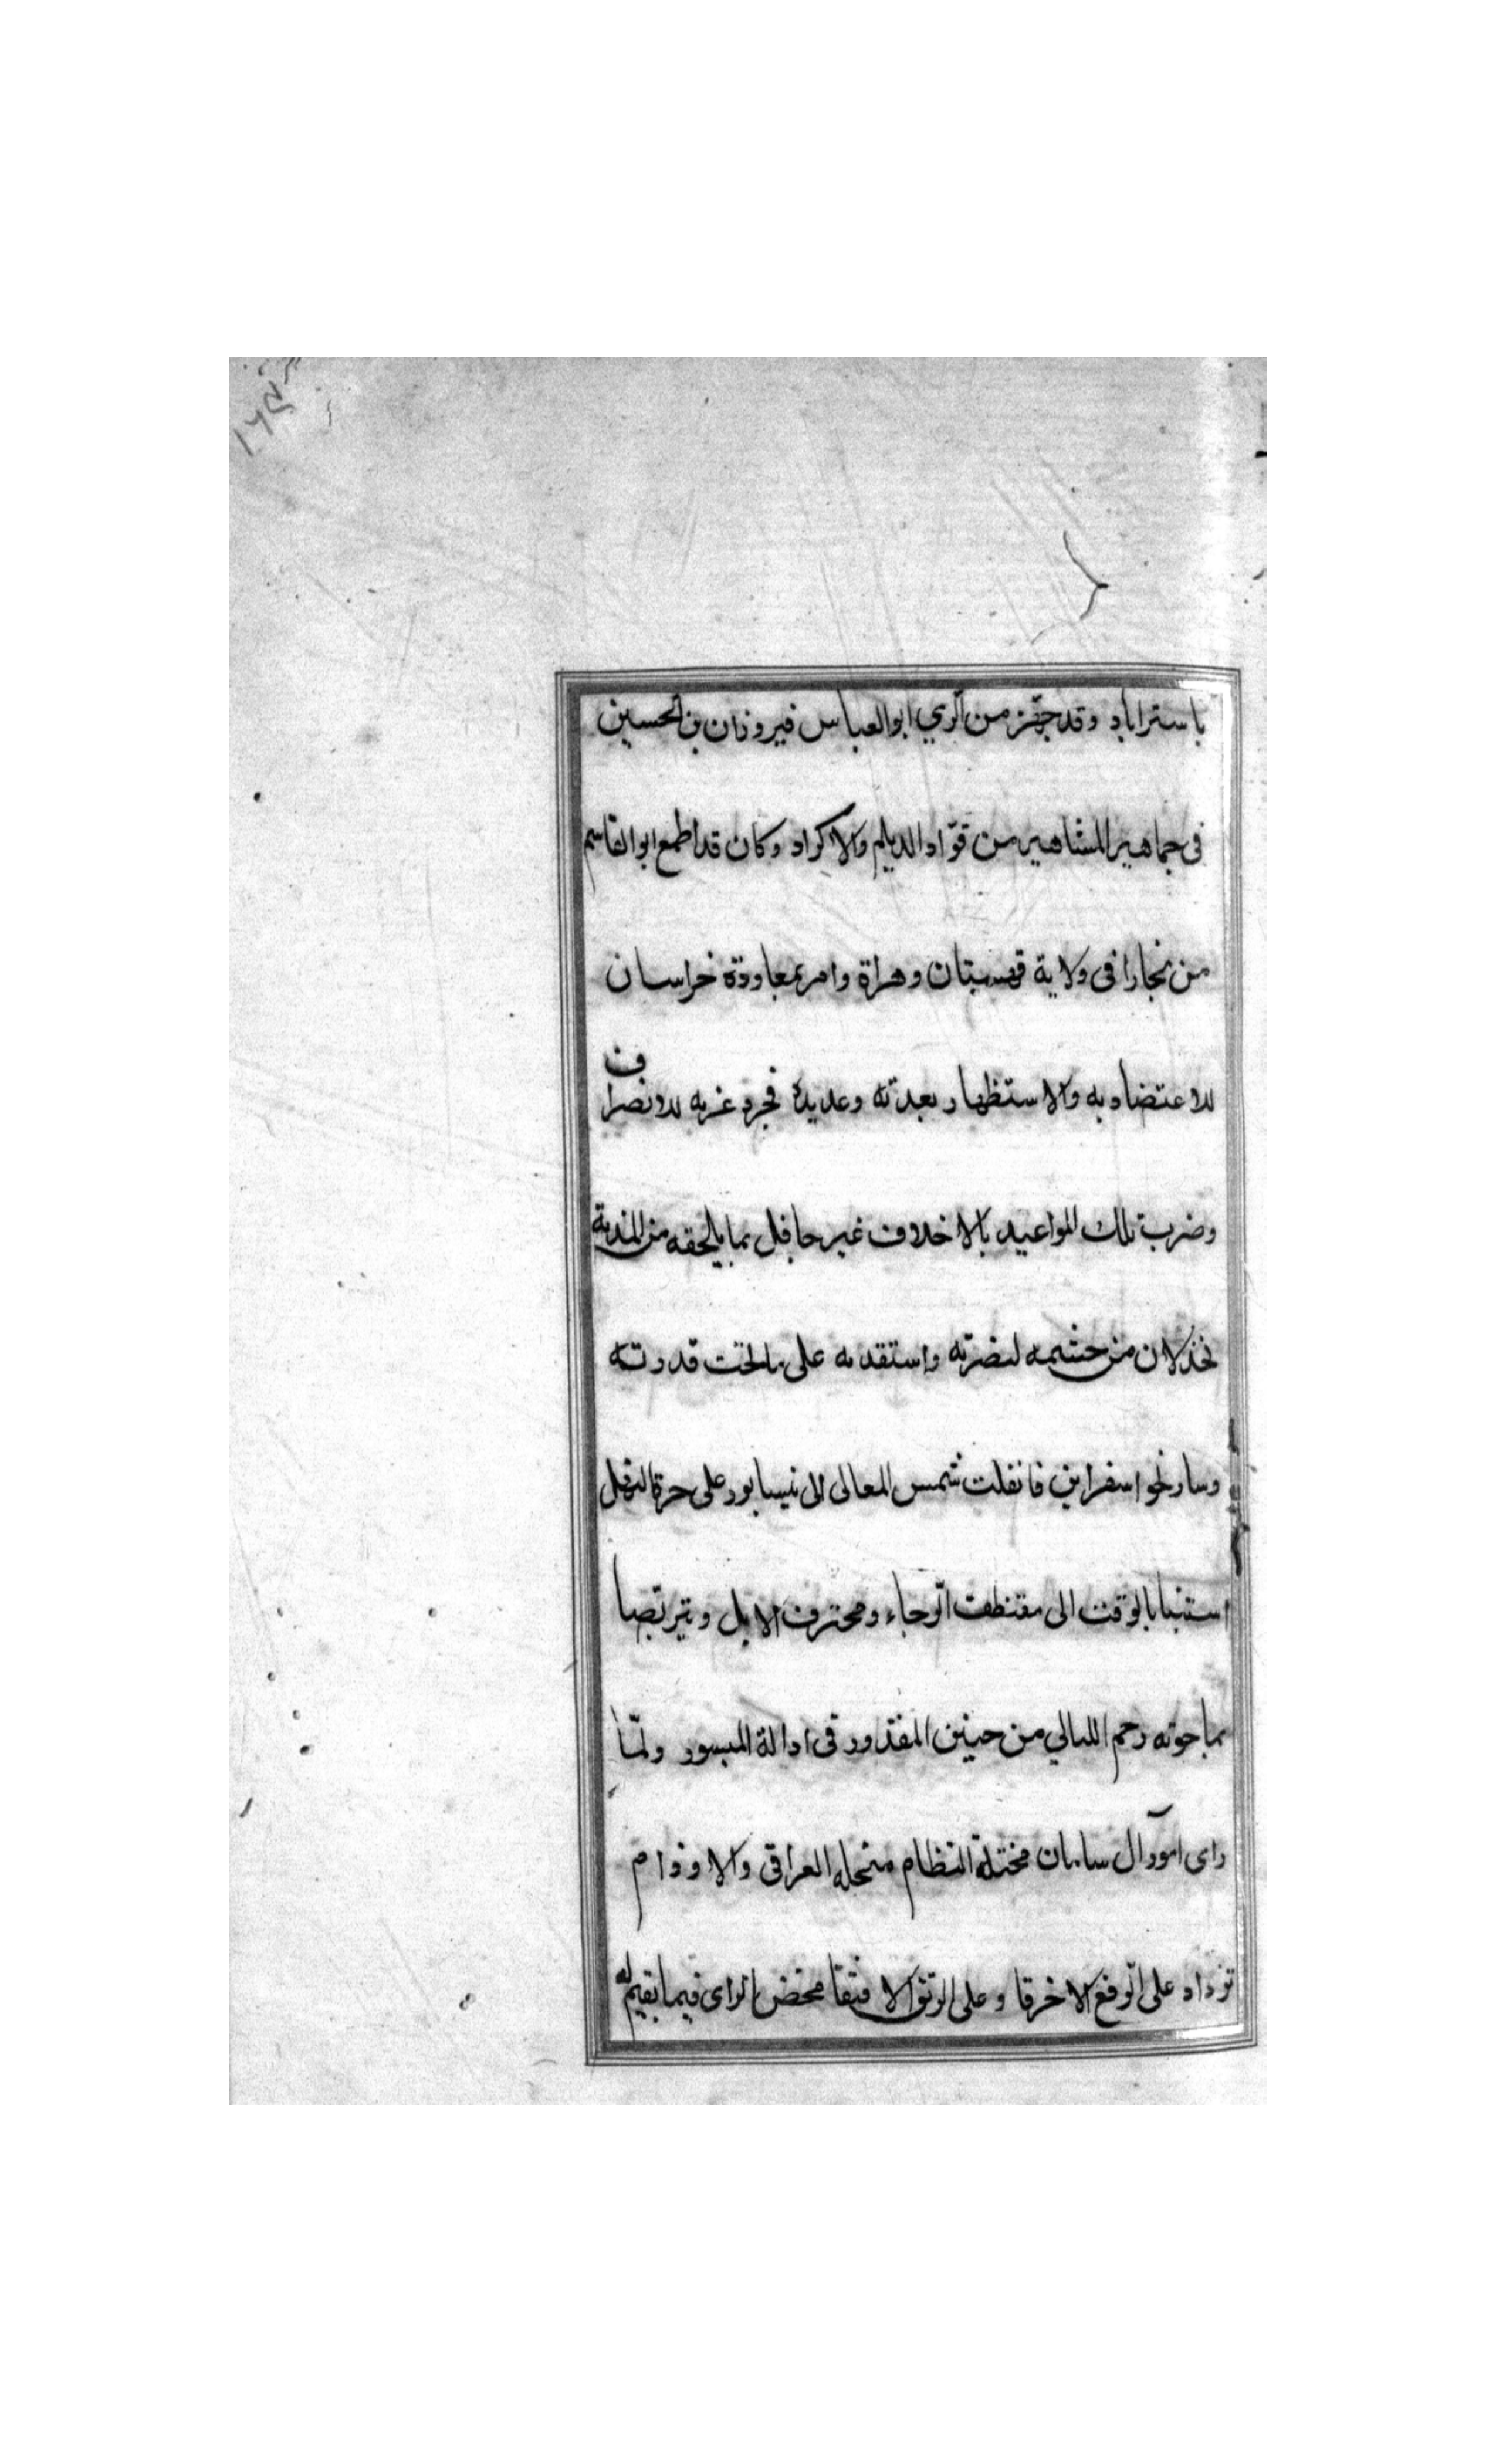 باستراباد وقد جهّز من الرّي ابوالعباس فيروزان بن الحسين
فى جماهير المشاهير من قوّاد الديلم والاكراد وكان قد اطمع ابوالقاسم
من بخارا فى ولاية قهستان وهراة وامر بمعاودة خراسان
للاعتضاد به والاستظهار بعدته وعديده فجرد عزمه للانصراف
وضرب تلك المواعيد بالاخلاف غير حافل بما يلحقه من المذمة
بخذلان من حشمه لنصرته واستقدمه على ما تحت قدرته
وسار نحو اسفراين فانفلت شمس المعالى الى نيسابور على حرة
بالوقت الى الرجاء ومحترف الابل وتيرتصا
بما حوته رحم الليالي من جنين المقدور فى ادالة الميسور ولمّا
راى امور آل سامان مختلة النظام منحله العراقى والاوذام
تزداد على الرقع الا خرقا وعلى الرتق الا فتقا محض الراى فيما يقيم له